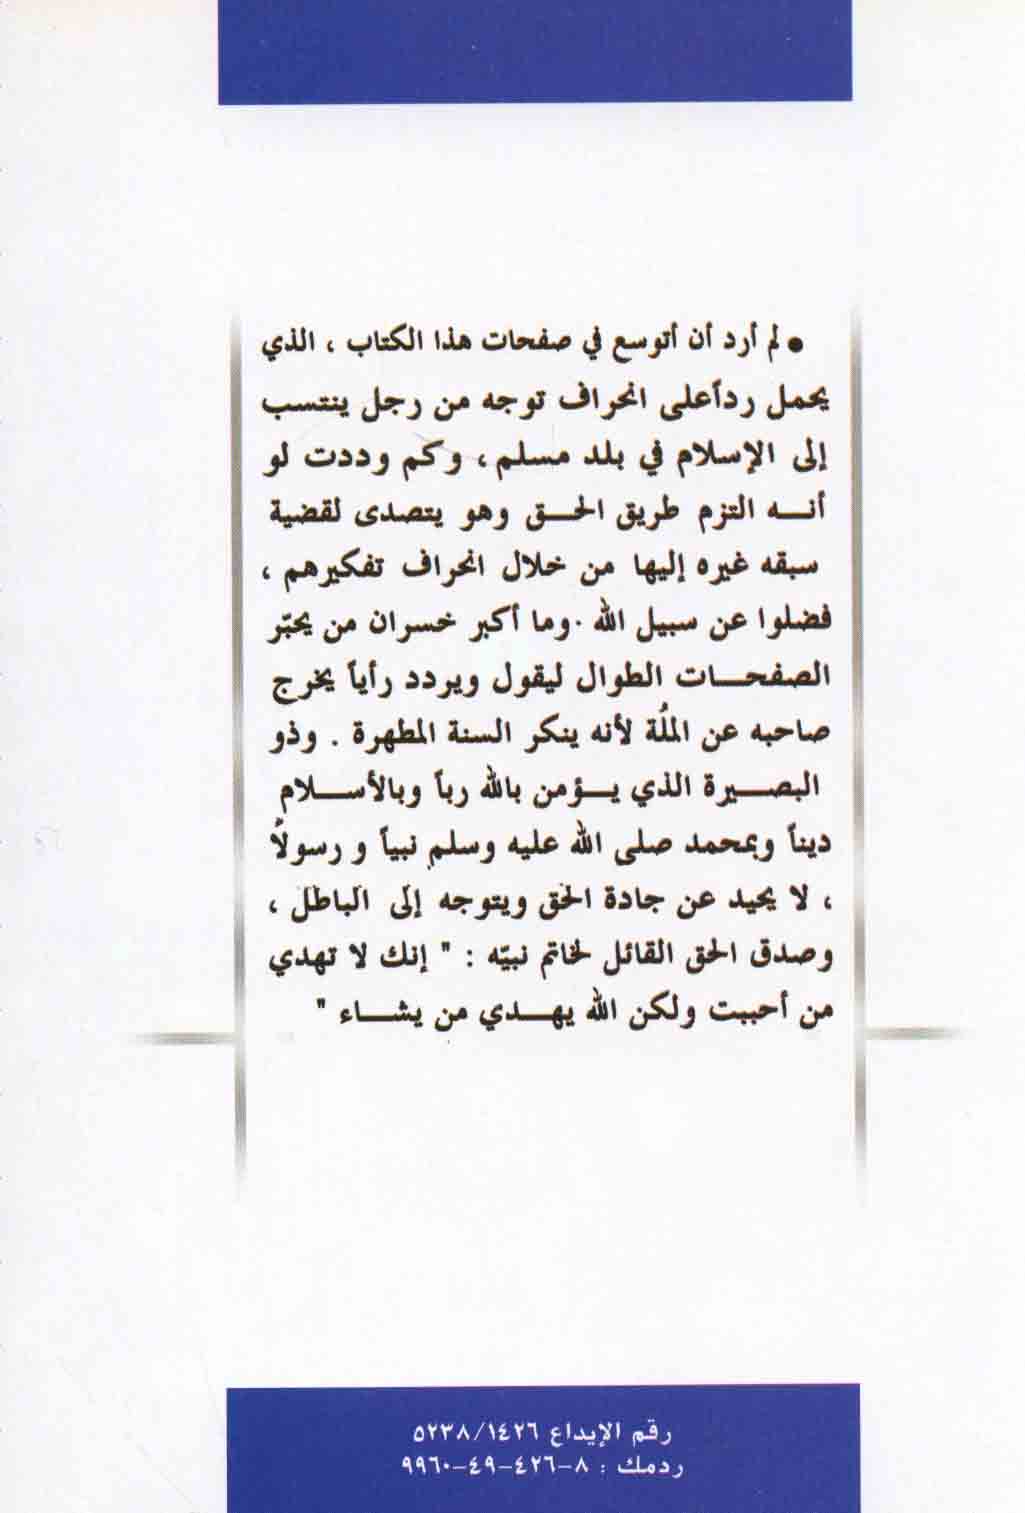 ● لم أرد أن أتوسع في صفحات هذا الكتاب ، الذي
يحمل رداً على انحراف توجه من رجل ينتسب
إلى الإسلام في بلد مسلم ، وكم وددت لو
أنــه التزم طريق الحــق وهو يتصدى لقضية
سبقه غيره إليها من خلال انحراف تفكيرهم ،
فضلوا عن سبيل الله . وما أكبر خسران من يحبّر
الصفحــات الطوال ليقول ويردد رأياً يخرج
صاحبه عن الملُة لأنه ينكر السنة المطهرة . وذو
البصــيرة الذي يــؤمن بالله رباً وبالأســلام
ديناً وبمحمد صلى الله عليه وسلم نبياً و رسولاً
، لا يحيد عن جادة الحق ويتوجه إلى الباطل ،
وصدق الحق القائل لخاتم نبيّه : " إنك لا تهدي
من أحببت ولكن الله يهــدي من يشــاء "
رقم الإيداع ٥٢٣٨/١٤٢٦
ردمك : ٨-٤٢٦-٤٩-٩٩٦٠